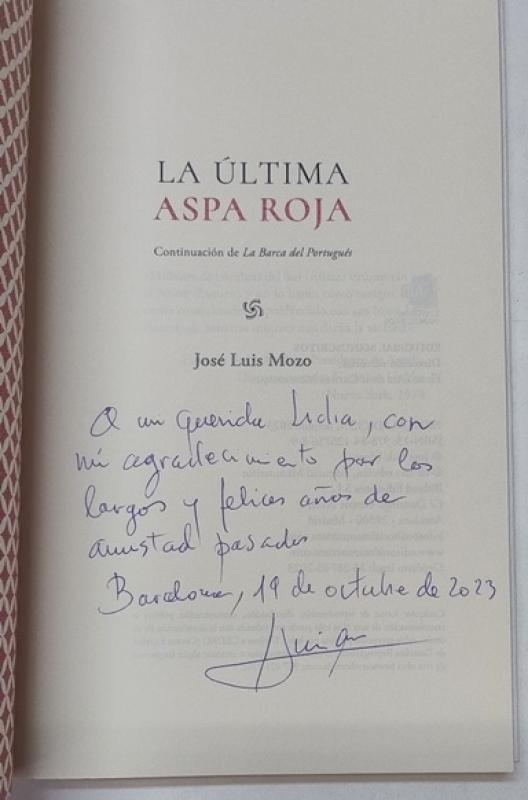 LA ÚLTIMA
ASPA ROJA
Continuación de La Barca del Portugués
José Luis Mozo
A mi querida Lidia, con
mi agradecimiento por los
largos y felices años de
amistad pasados
Barcelona, 19 de octubre de 2023